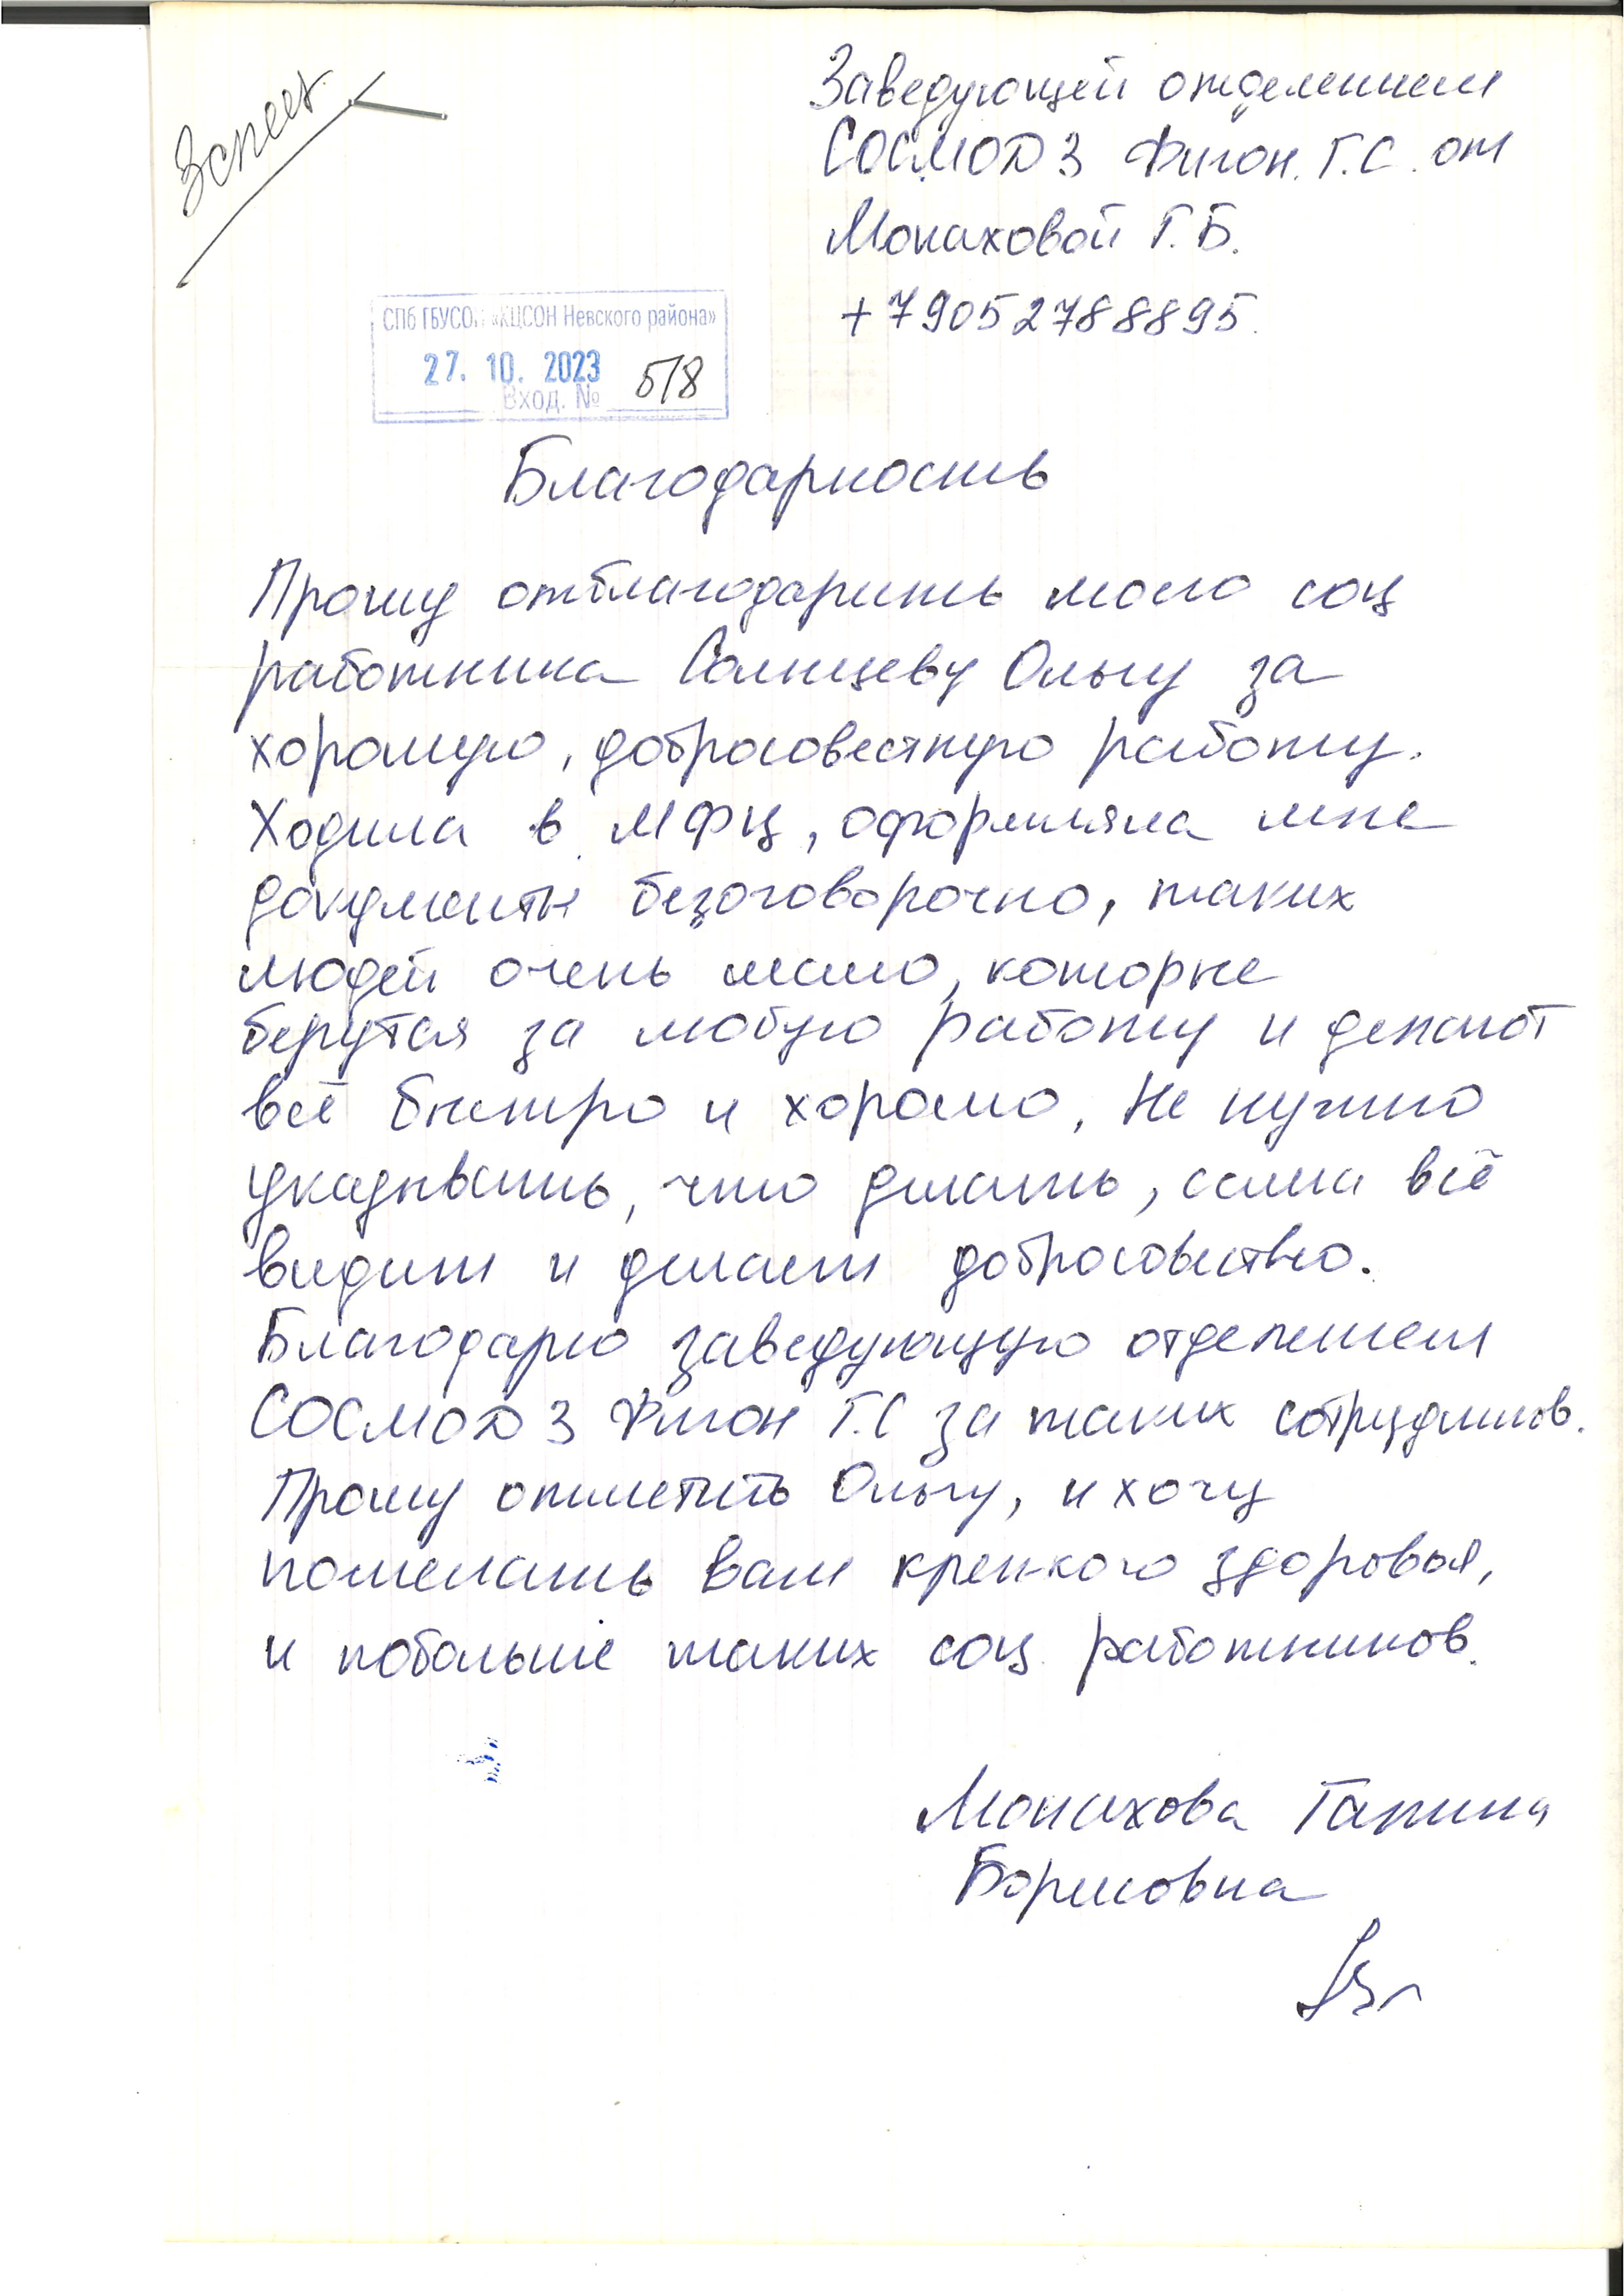 Заведующей отделением
СОСМОД 3 Фигон. Г.С. от
Монаховой Г.Б.
+79052788895.
СПб ГБУСОН «КЦСОН Невского района»
27. 10. 2023
Вход. № 518
Благодарность
Прошу отблагодарить моего соц
работника Солнцеву Ольгу за
хорошую, добросовестную работу.
Ходила в МФЦ, оформляла мне
документы безоговорочно, таких
людей очень мало, которые
берутся за любую работу и делают
всё быстро и хорошо, Не нужно
указывать, что делать, сама всё
видит и делает добросовестно.
Благодарю заведующую отделением
СОСМОД 3 Фигон Г.С за таких сотрудников.
Прошу отметить Ольгу, и хочу
пожелать вам крепкого здоровья,
и побольше таких соц. работников.
Монахова Галина
Борисовна